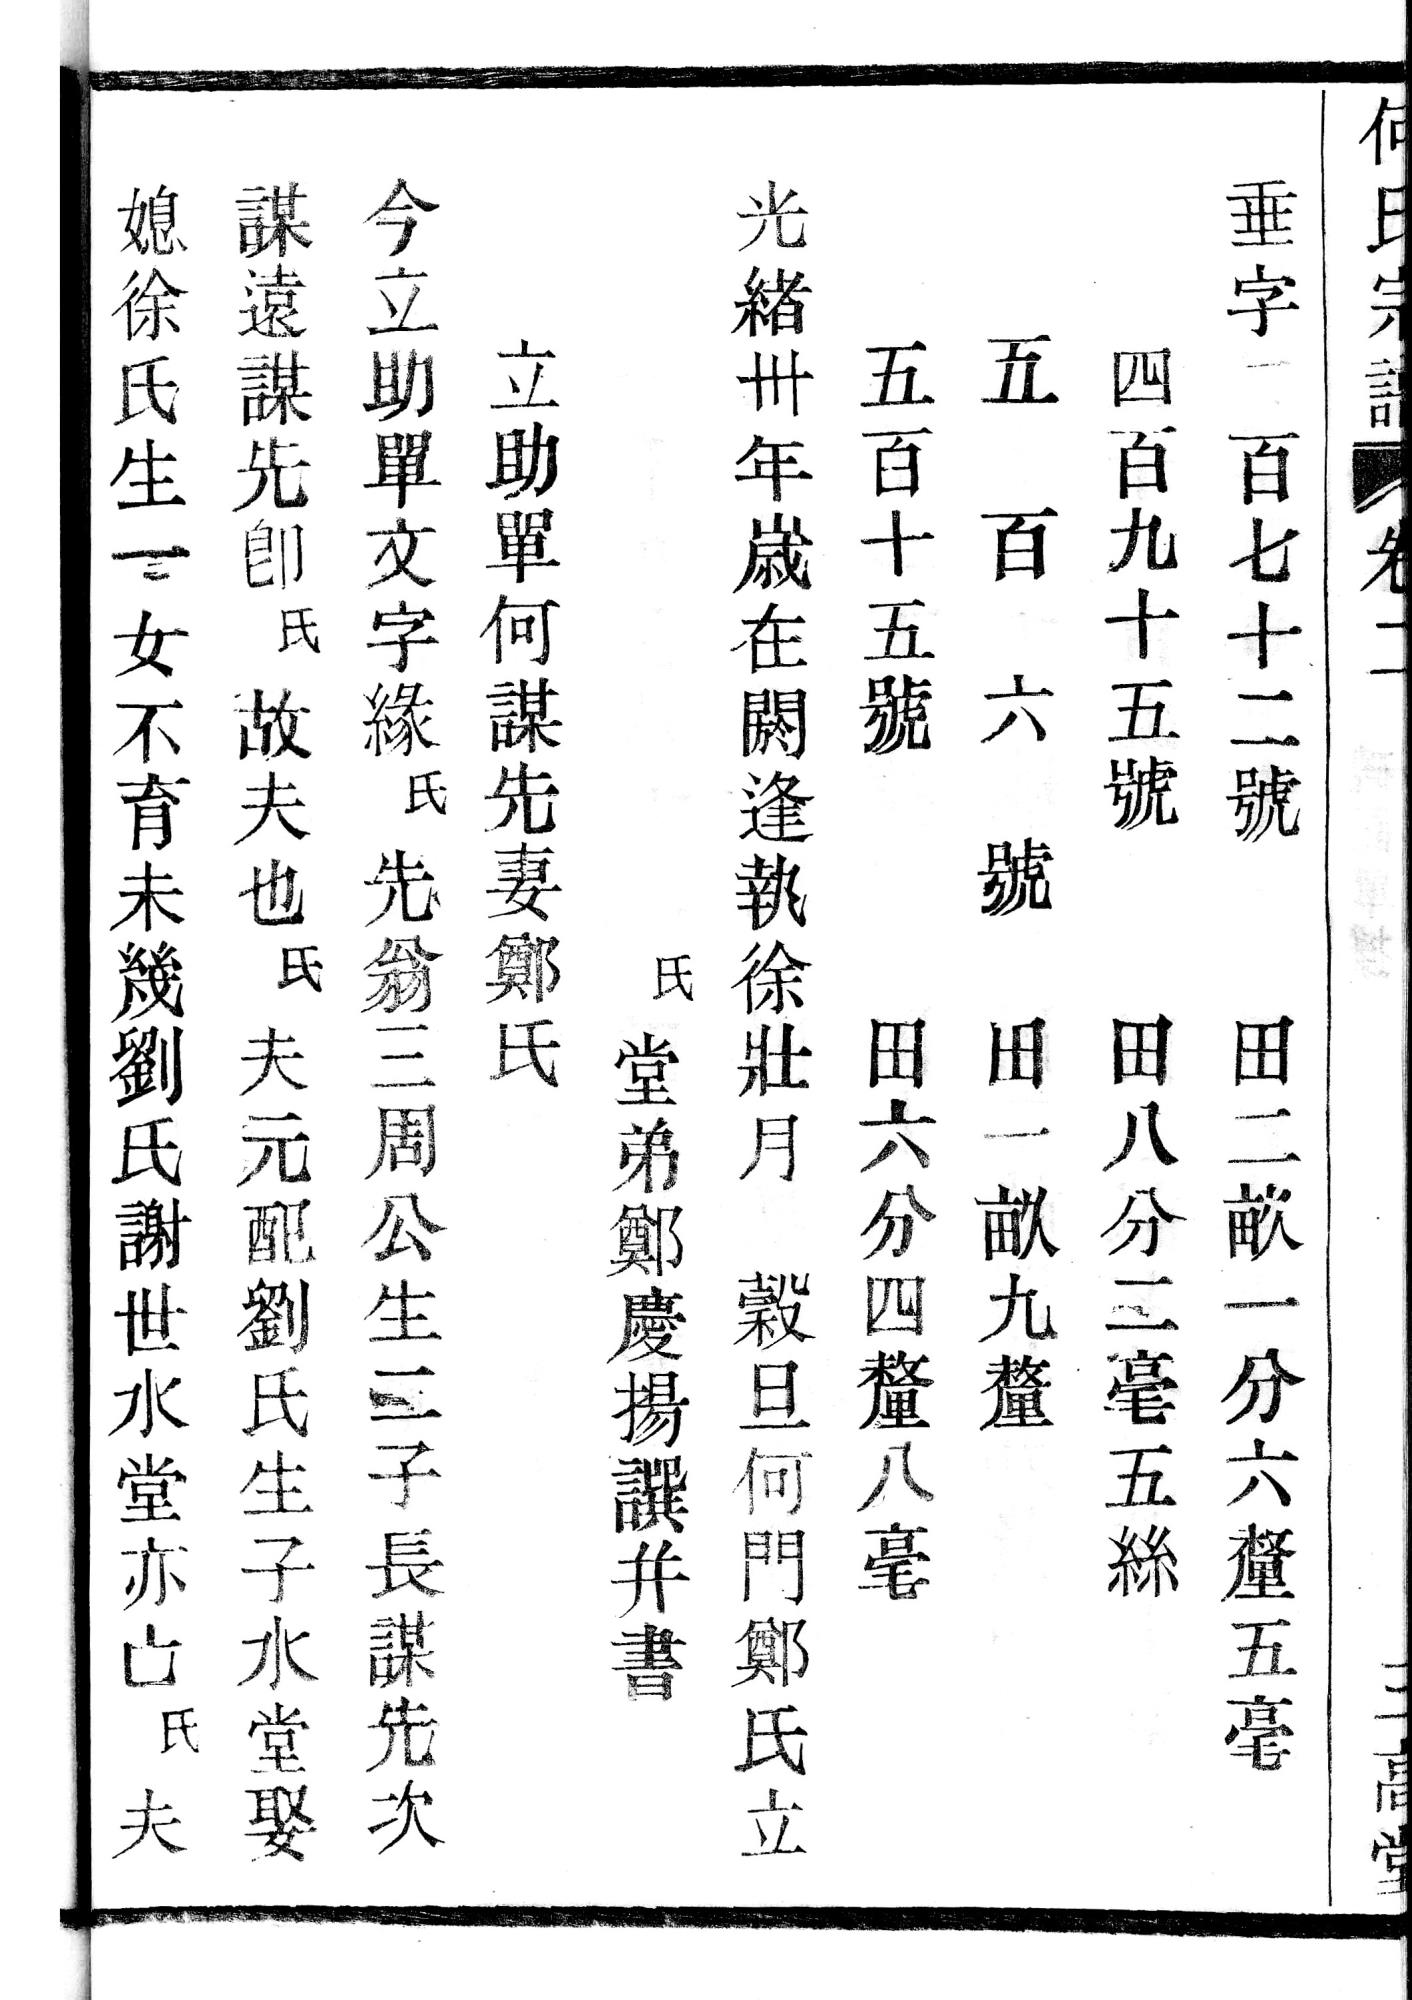 何氏宗譜 卷二 三高堂
垂字一百七十二號 田二畝一分六釐五毫
四百九十五號 田八分二毫五絲
五百六號 田一畝九釐
五百十五號 田六分四釐八毫
光緒卅年歲在閼逢執徐壯月 穀旦何門鄭氏立
氏堂弟鄭慶揚譔幷書
立助單何謀先妻鄭氏
今立助單文字緣氏先翁三周公生三子長謀先次
謀遠謀先卽氏故夫也氏夫元配劉氏生子水堂娶
媳徐氏生一女不育未幾劉氏謝世水堂亦亡氏夫